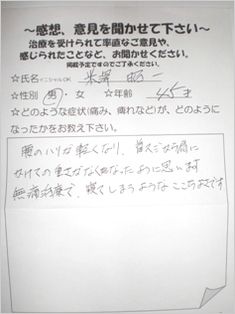 ～感想、意見を聞かせて下さい～
治療を受けられて率直なご意見や、
感じられたことなど、お聞かせください。
掲載予定ですのでご了承ください。
☆氏名 イニシャルOK
☆性別 男・女 ☆年齢 45才
☆どのような症状(痛み、痺れなど)が、どのように
なったかをお教え下さい。
腰のハリが軽くなり、首スジから肩に
かけての重さがなくなったように思います
無痛治療で、寝てしまうようなここちよさです